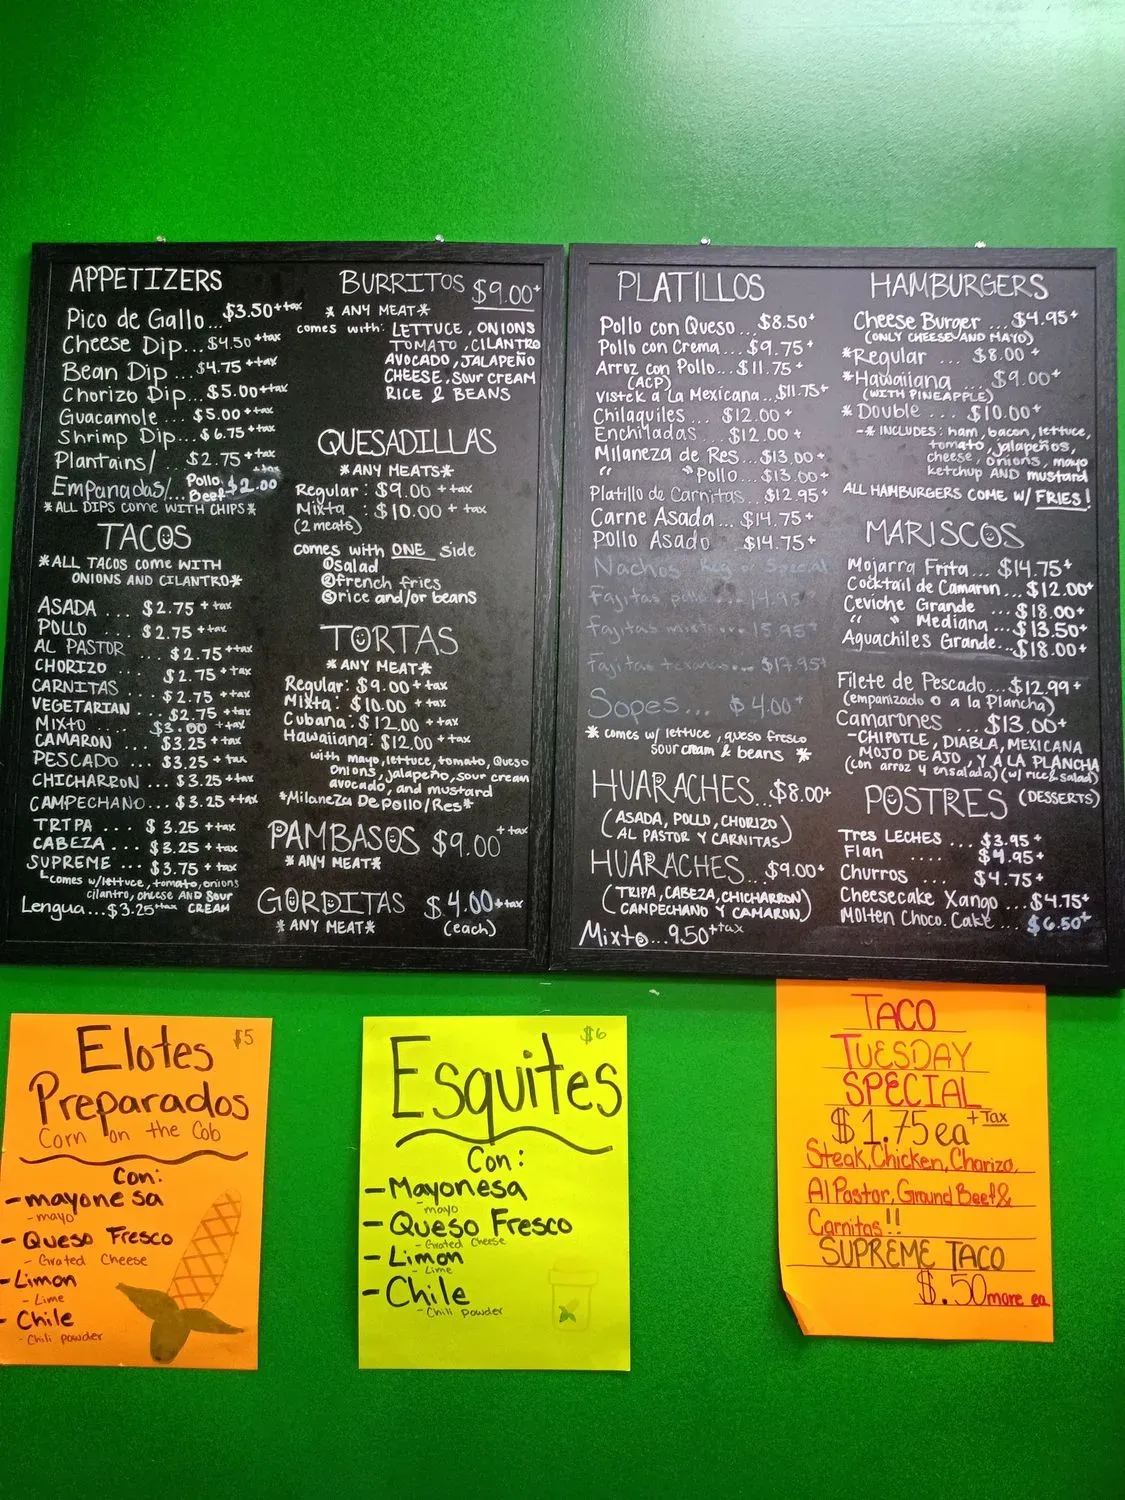 APPETIZERS
Pico de Gallo... $3.50++tax
Cheese Dip... $4.50+tax
Bean Dip... $4.75++tax
Chorizo Dip... $5.00++tax
Guacamole... $5.00++tax
Shrimp Dip... $6.75++tax
Plantains/ $2.75++tax
Empanadas/... Pollo Beef $2.00 +tax
*ALL DIPS come WITH CHIPS*
TACOS
*ALL TACOS come WITH
ONIONS AND CILANTRO*
ASADA ... $2.75++tax
POLLO ... $2.75++tax
AL PASTOR ... $2.75++tax
CHORIZO ... $2.75++tax
CARNITAS ... $2.75++tax
VEGETARIAN ... $2.75++tax
MIXTO ... $3.00++tax
CAMARON ... $3.25++tax
PESCADO ... $3.25++tax
CHICHARRON ... $3.25++tax
CAMPECHANO... $3.25++tax
TRIPA ... $3.25++tax
CABEZA ... $3.25++tax
SUPREME ... $3.75+tax
comes w/lettuce, tomato, onions
cilantro, cheese AND Sour
CREAM
Lengua... $3.25++tax
BURRITOS $9.00+
* ANY MEAT*
comes with: LETTUCE, ONIONS
TOMATO, CILANTRO
AVOCADO, JALAPEÑO
CHEESE, Sour CREAM
RICE & BEANS
QUESADILLAS
*ANY MEATS*
Regular: $9.00++tax
Mixta : $10.00++tax
(2 meats)
comes with ONE side
①salad
②french fries
③rice and/or beans
TORTAS
*ANY MEAT*
Regular: $9.00++tax
Mixta: $10.00++tax
Cubana: $12.00++tax
Hawaiiana: $12.00++tax
with mayo, lettuce, tomato, Queso
Onions, jalapeño, sour cream
avocado, and mustard
*Milaneza De pollo/Res*
PAMBASOS $9.00++tax
*ANY MEAT*
GORDITAS $4.00++tax
*ANY MEAT* (each)
PLATILLOS
Pollo con Queso... $8.50+
Pollo con Crema... $9.75+
Arroz con Pollo... $11.75+
(ACP)
Vistek a La Mexicana... $11.75+
Chilaquiles ... $12.00+
Enchiladas ... $12.00+
Milaneza de Res... $13.00+
" " Pollo... $13.00+
Platillo de Carnitas... $12.95+
Carne Asada... $14.75+
Pollo Asado ... $14.75+
Nachos Reg or Special
Fajitas pollo ... 14.95+
Fajitas mixta... 15.95+
Fajitas texanas... $17.95+
Sopes... $4.00+
* comes w/ lettuce, queso fresco
sour cream & beans *
HUARACHES... $8.00+
(ASADA, POLLO, CHORIZO
AL PASTOR Y CARNITAS)
HUARACHES... $9.00+
(TRIPA, CABEZA, CHICHARRON
CAMPECHANO Y CAMARON)
Mixto... 9.50++tax
HAMBURGERS
Cheese Burger ... $4.95+
(ONLY CHEESE AND MAYO)
*Regular ... $8.00+
*Hawaiiana ... $9.00+
(WITH PINEAPPLE)
*Double ... $10.00+
-* INCLUDES: ham, bacon, lettuce,
tomato, jalapeños,
cheese, onions, mayo
ketchup AND mustard
ALL HAMBURGERS COME W/ FRIES!
MARISCOS
Mojarra Frita... $14.75+
Cocktail de Camaron... $12.00+
Ceviche Grande ... $18.00+
" " Mediana ... $13.50+
Aguachiles Grande... $18.00+
Filete de Pescado... $12.99+
(empanizado o a la Plancha)
Camarones ... $13.00+
-CHIPOTLE, DIABLA, MEXICANA
MOJO DE AJO, Y A LA PLANCHA
(con arroz y ensalada)(w/ rice & salad)
POSTRES (DESSERTS)
Tres LECHES ... $3.95+
Flan .... $4.95+
Churros .... $4.75+
Cheesecake Xango ... $4.75+
Molten Choco. Cake ... $6.50+
Elotes $5
Preparados
Corn on the Cob
Con:
- mayonesa
- mayo
- Queso Fresco
- Grated Cheese
- Limon
- Lime
- Chile
- Chili powder
$6
Esquites
Con:
- Mayonesa
- mayo
- Queso Fresco
- Grated Cheese
- Limon
- Lime
- Chile
- Chili powder
TACO
TUESDAY
SPECIAL
$1.75 ea +Tax
Steak, Chicken, Chorizo,
Al Pastor, Ground Beef &
Carnitas!!
SUPREME TACO
$.50 more ea